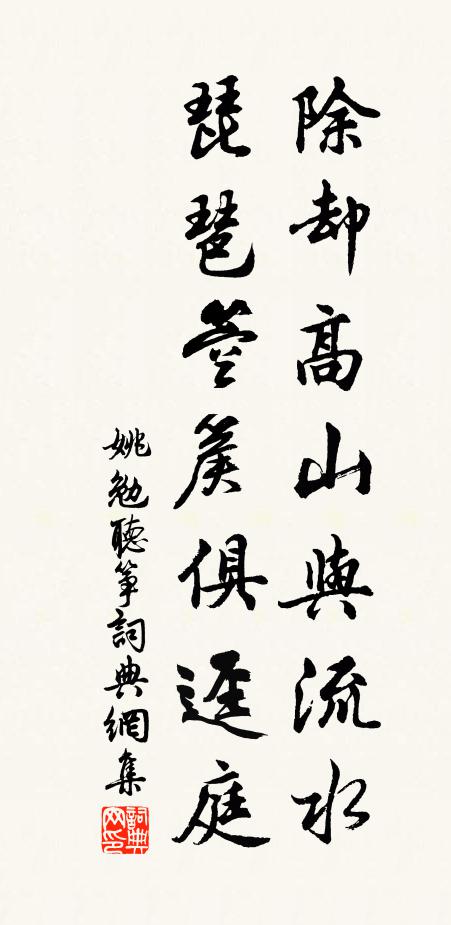 除却高山與流水
琵琶箜篌俱逕庭
姚勉聽箏詞典網集
詞典网印